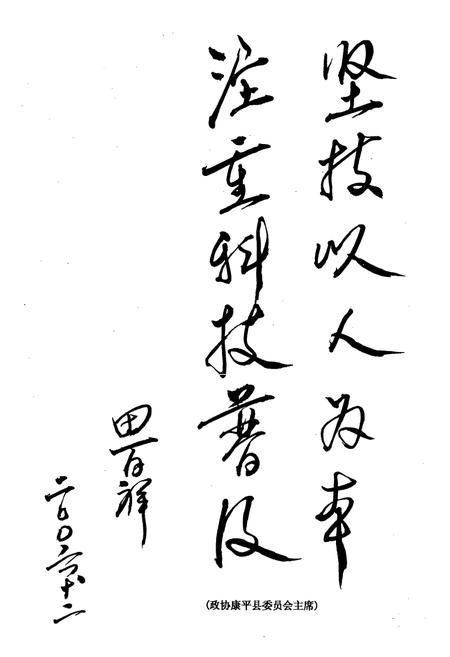 坚持以人为本
注重科技普及
田百祥
二〇〇六、十二
(政协康平县委员会主席)